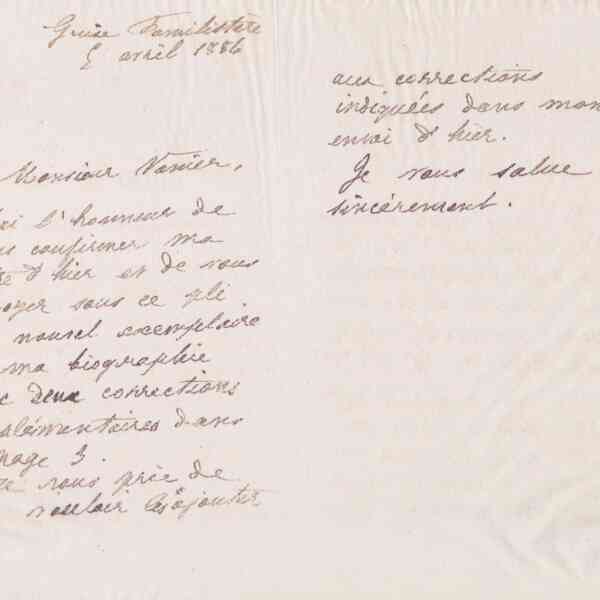 Guise Familistère
5 avril 1886
Monsieur Vanier,
ai l'honneur de
confirmer ma
d'hier et de vous
sous ce pli
nouvel exemplaire
ma biographie
deux corrections
dans
page 3.
vous prie de
vouloir les ajouter
aux corrections
indiquées dans mon
envoi d'hier.
Je vous salue
sincèrement.